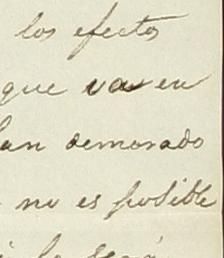 los efectos
que van en
han demorado
no es posible